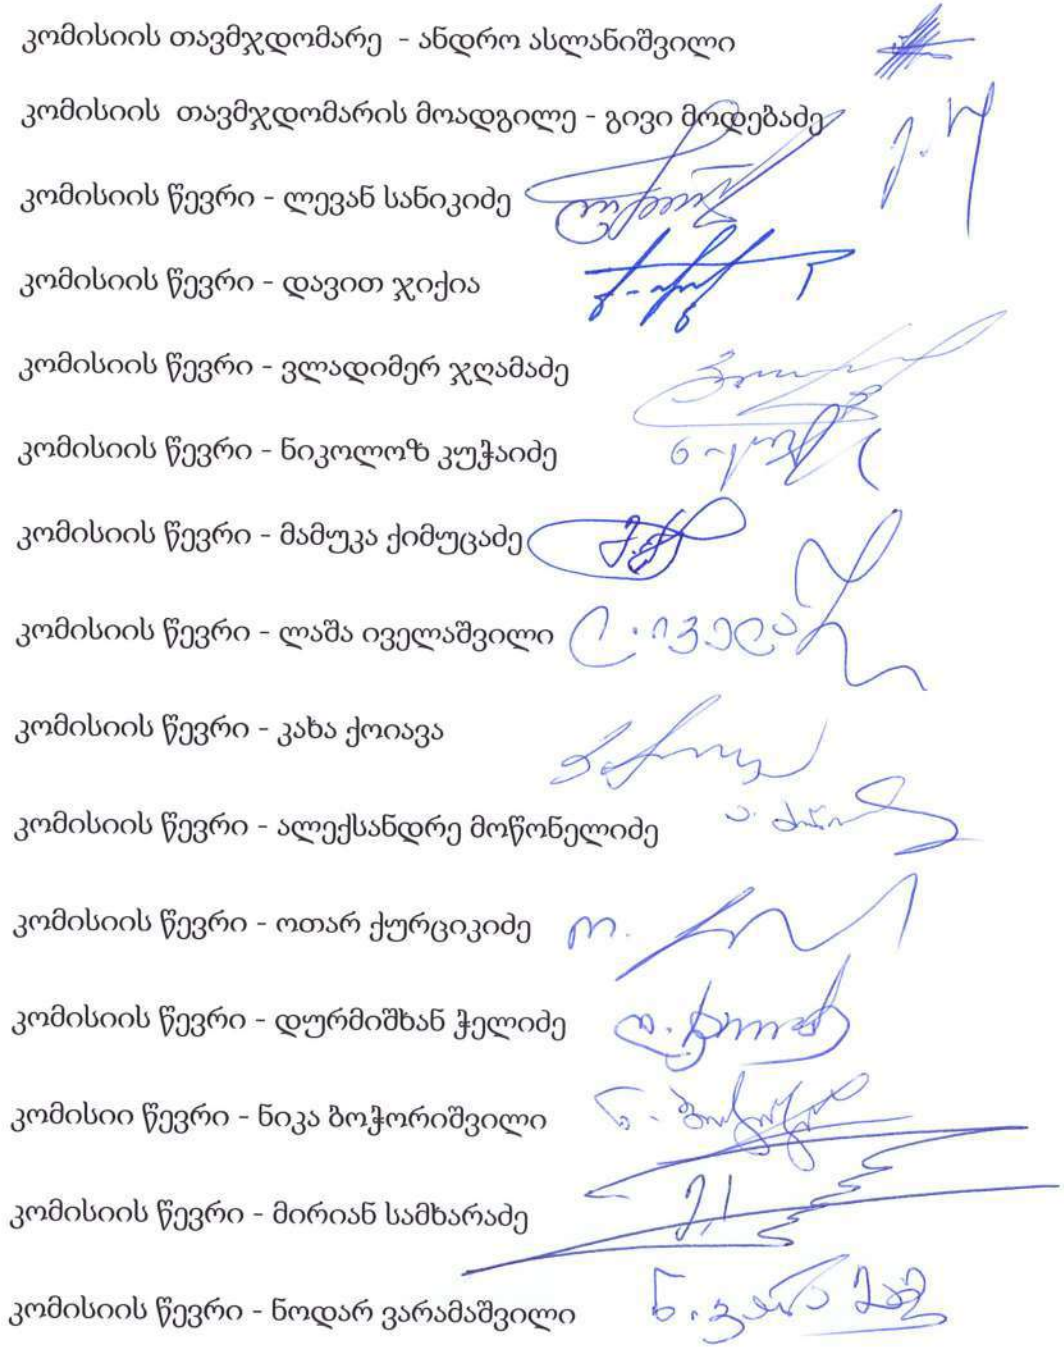 კომისიის თავმჯდომარე - ანდრო ასლანიშვილი
კომისიის თავმჯდომარის მოადგილე - გივი მოდებაძე
კომისიის წევრი - ლევან სანიკიძე
კომისიის წევრი - დავით ჯიქია
კომისიის წევრი - ვლადიმერ ჯღამაძე
კომისიის წევრი - ნიკოლოზ კუჭაიძე
კომისიის წევრი - მამუკა ქიმუცაძე
კომისიის წევრი - ლაშა იველაშვილი
კომისიის წევრი - კახა ქოიავა
კომისიის წევრი - ალექსანდრე მოწონელიძე
კომისიის წევრი - ოთარ ქურციკიძე
კომისიის წევრი - დურმიშხან ჭელიძე
კომისიი წევრი - ნიკა ბოჭორიშვილი
კომისიის წევრი - მირიან სამხარაძე
კომისიის წევრი - ნოდარ ვარამაშვილი